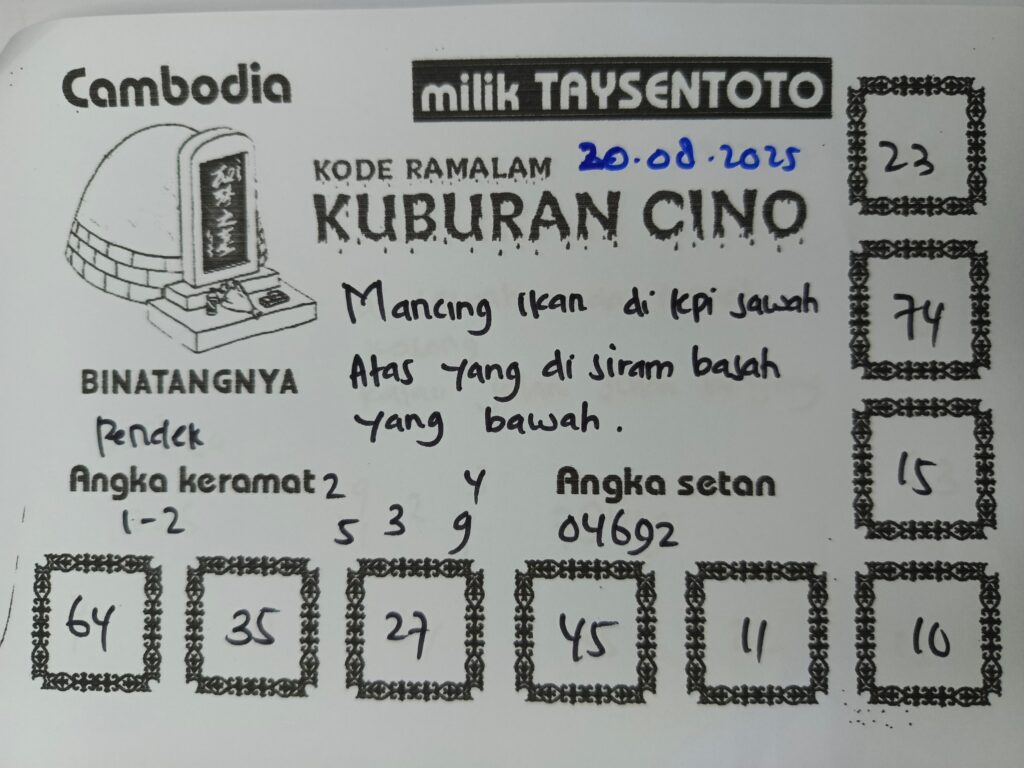 Cambodia
milik TAYSENTOTO
KODE RAMALAM 20.08.2025
KUBURAN CINO
Mancing ikan di kpi sawah
Atas yang di siram basah
yang bawah.
BINATANGNYA
Pendek
Angka keramat 2 4
1-2 5 3 9
Angka setan
04692
23
74
15
64 35 27 45 11 10